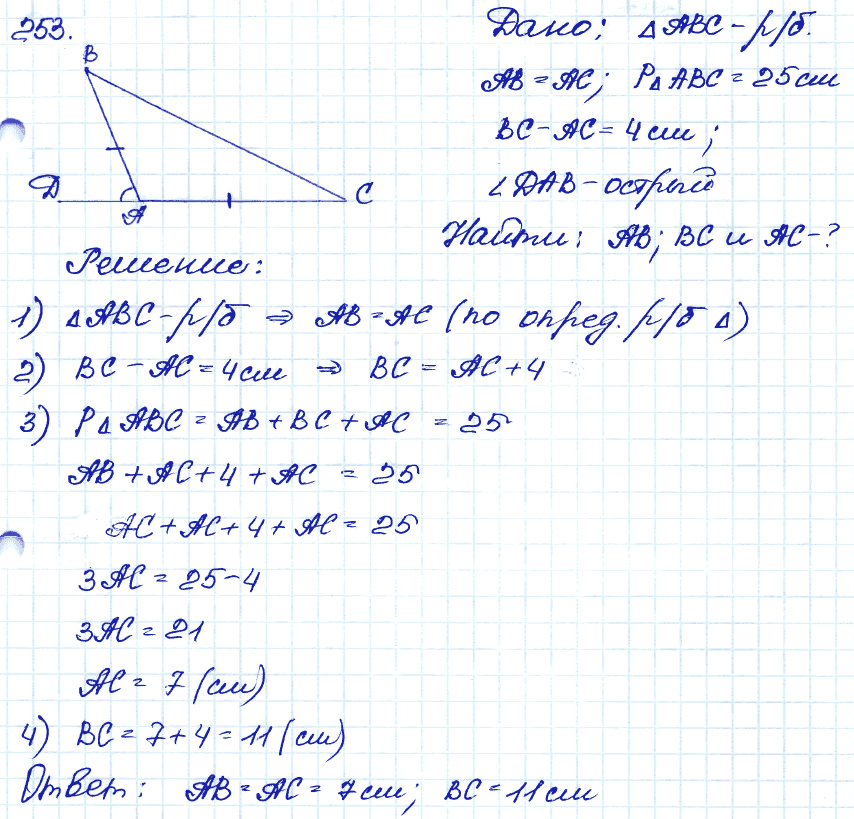 253.
Дано: △ABC - р/б.
AB = AC; P△ABC = 25 см
BC - AC = 4 см;
∠DAB - острый
Найти: AB; BC и AC - ?
B
D
A
C
Решение:
1) △ABC - р/б ⇒ AB = AC (по опред. р/б △)
2) BC - AC = 4 см ⇒ BC = AC + 4
3) P△ABC = AB + BC + AC = 25
AB + AC + 4 + AC = 25
AC + AC + 4 + AC = 25
3AC = 25 - 4
3AC = 21
AC = 7 (см)
4) BC = 7 + 4 = 11 (см)
Ответ: AB = AC = 7 см; BC = 11 см